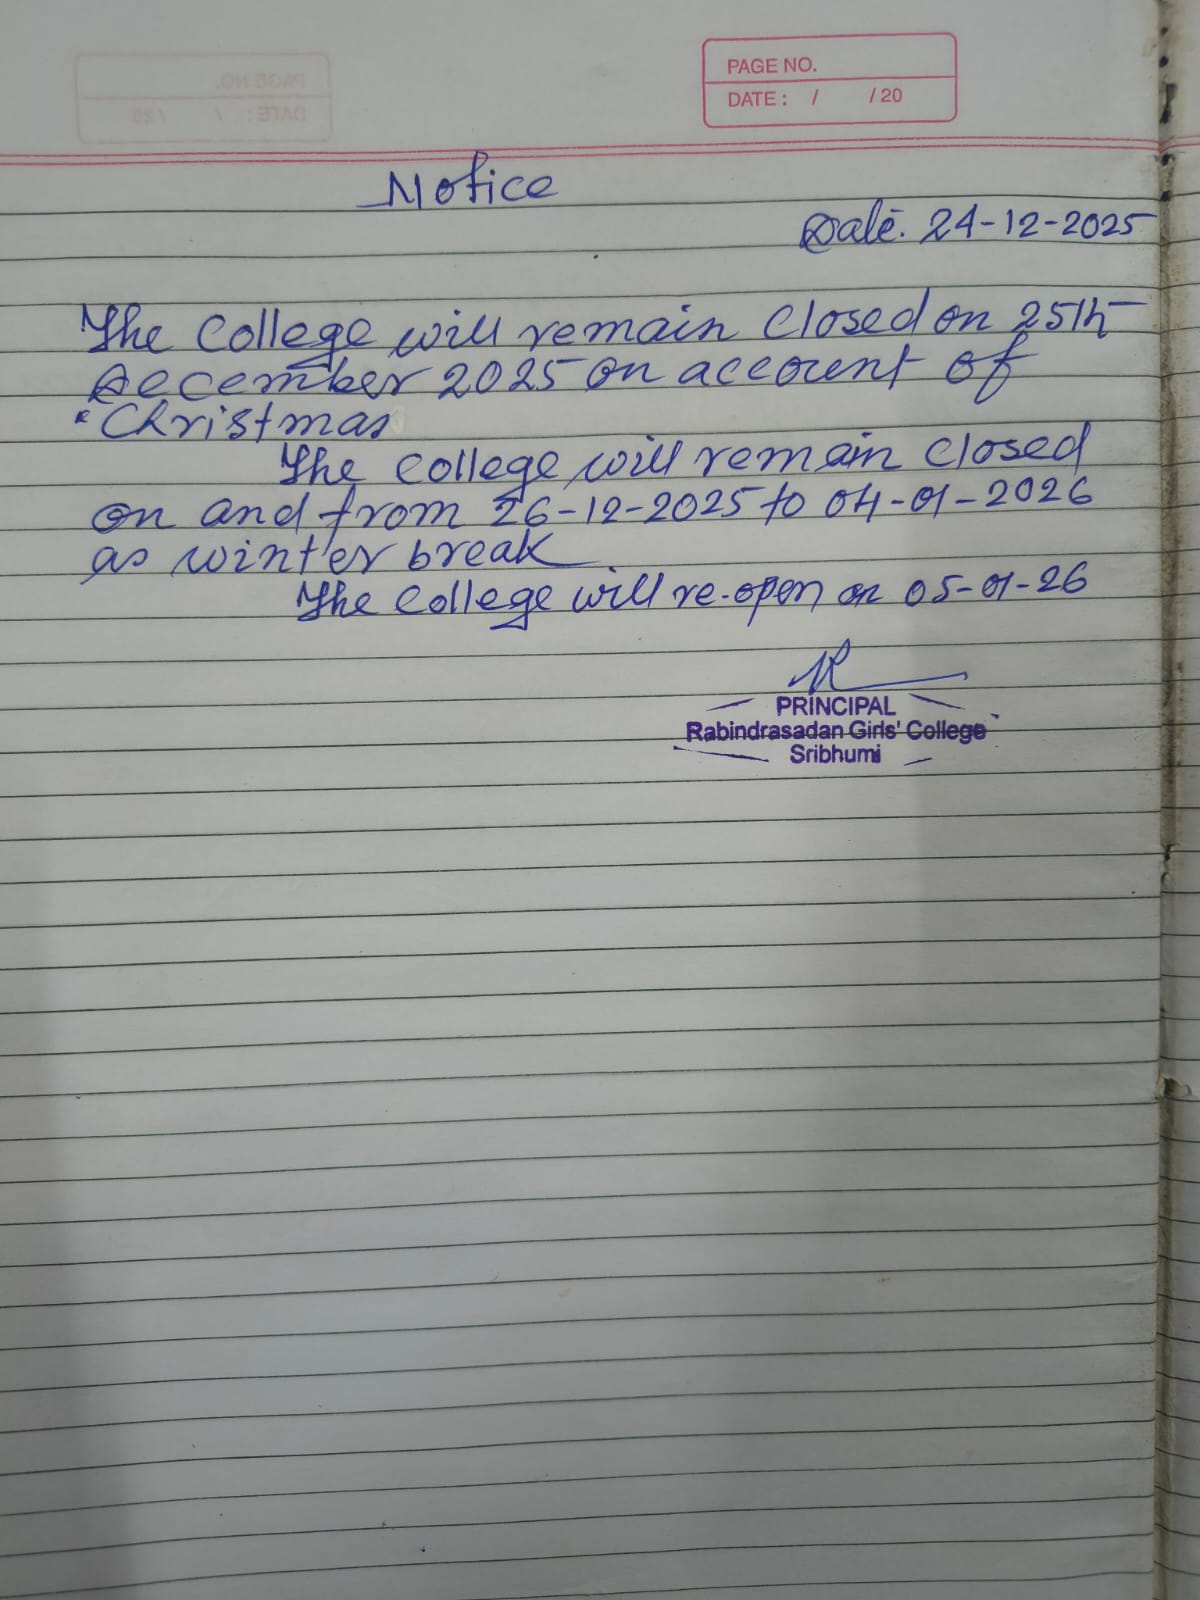 PAGE NO.
DATE : / / 20
Notice
Date. 24-12-2025
The College will remain closed on 25th
December 2025 on account of
Christmas
The College will remain closed
on and from 26-12-2025 to 04-01-2026
as winter break
The College will re-open on 05-01-26
PRINCIPAL
Rabindrasadan Girls' College
Sribhumi